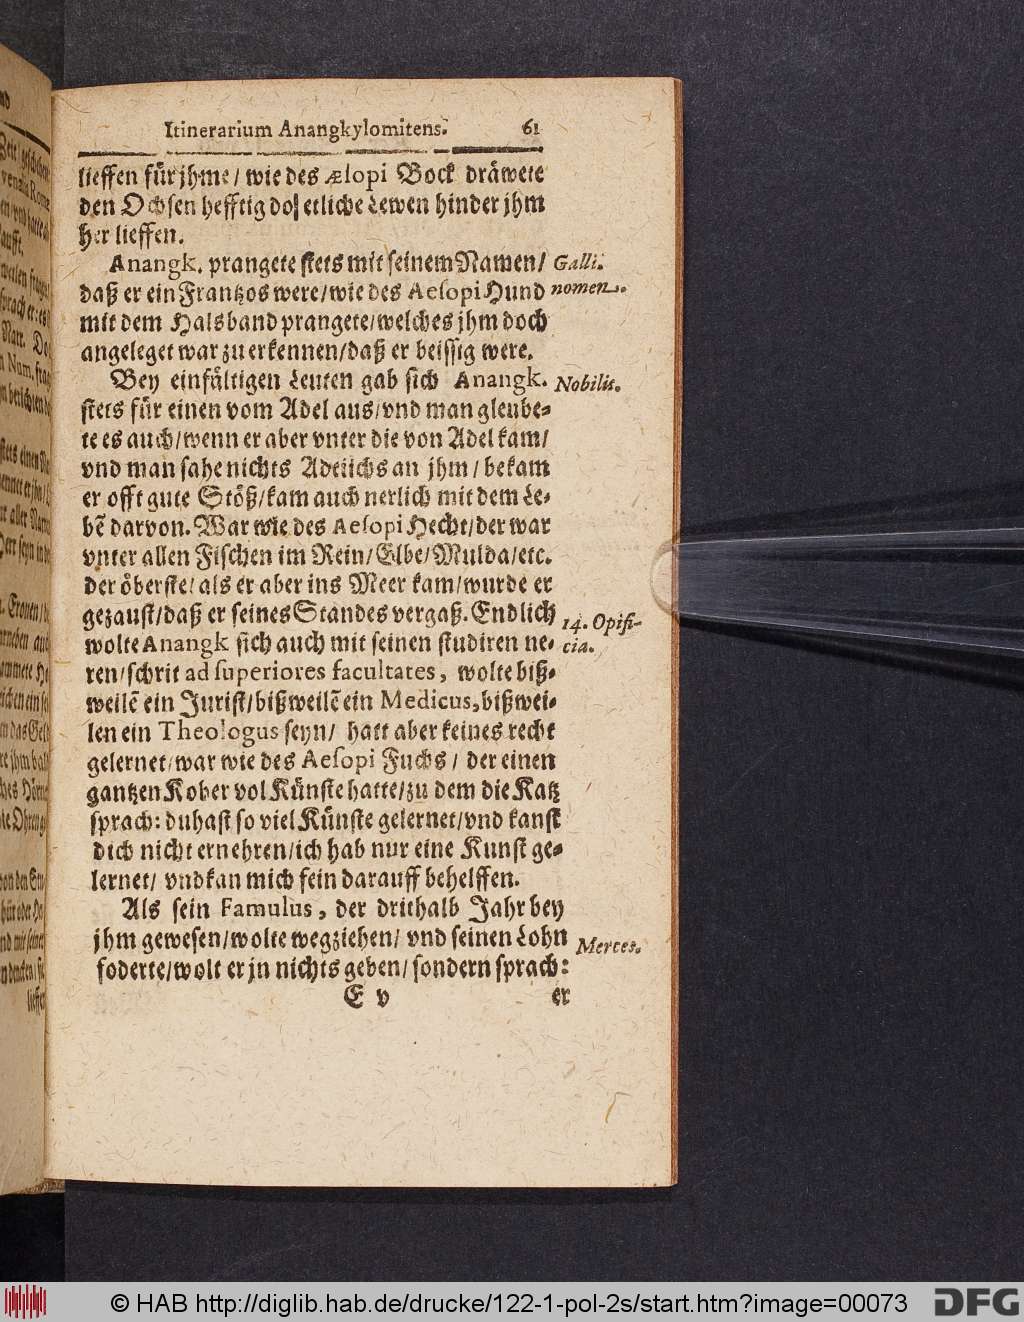 Itinerarium Anangkylomitens. 61
lieffen für jhme/ wie des ælopi Bock dräwete
den Ochsen hefftig do etliche Lewen hinder jhm
her lieffen.
Anangk. prangete stets mit seinem Namen/ Galli.
daß er ein Frantzos were/wie des Aeſopi Hund nomen.
mit dem Halsband prangete/welches jhm doch
angeleget war zu erkennen/daß er beissig were.
Bey einfältigen Leuten gab sich Anangk. Nobilis.
stets für einen vom Adel aus/vnd man gleube-
te es auch/wenn er aber vnter die von Adel kam/
vnd man sahe nichts Adelichs an jhm/ bekam
er offt gute Stöß/kam auch nerlich mit dem Le-
bẽ darvon. War wie des Aeſopi Hecht/der war
vnter allen Fischen im Rein/Elbe/Mulda/etc.
der öberste/als er aber ins Meer kam/wurde er
gezaust/daß er seines Standes vergaß. Endlich 14. Opifi-
wolte Anangk sich auch mit seinen studiren ne- cia.
ren/schrit ad ſuperiores facultates, wolte biß-
weilẽ ein Jurist/bißweilẽ ein Medicus,bißwei-
len ein Theologus seyn/ hatt aber keines recht
gelernet/war wie des Aeſopi Fuchs/ der einen
gantzen Kober vol Künste hatte/zu dem die Katz
sprach: du hast so viel Künste gelernet/vnd kanst
dich nicht ernehren/ich hab nur eine Kunst ge-
lernet/ vnd kan mich fein darauff behelffen.
Als sein Famulus, der drithalb Jahr bey
jhm gewesen/wolte wegziehen/ vnd seinen Lohn Merces.
foderte/wolt er jn nichts geben/ sondern sprach:
E v er
© HAB http://diglib.hab.de/drucke/122-1-pol-2s/start.htm?image=00073 DFG